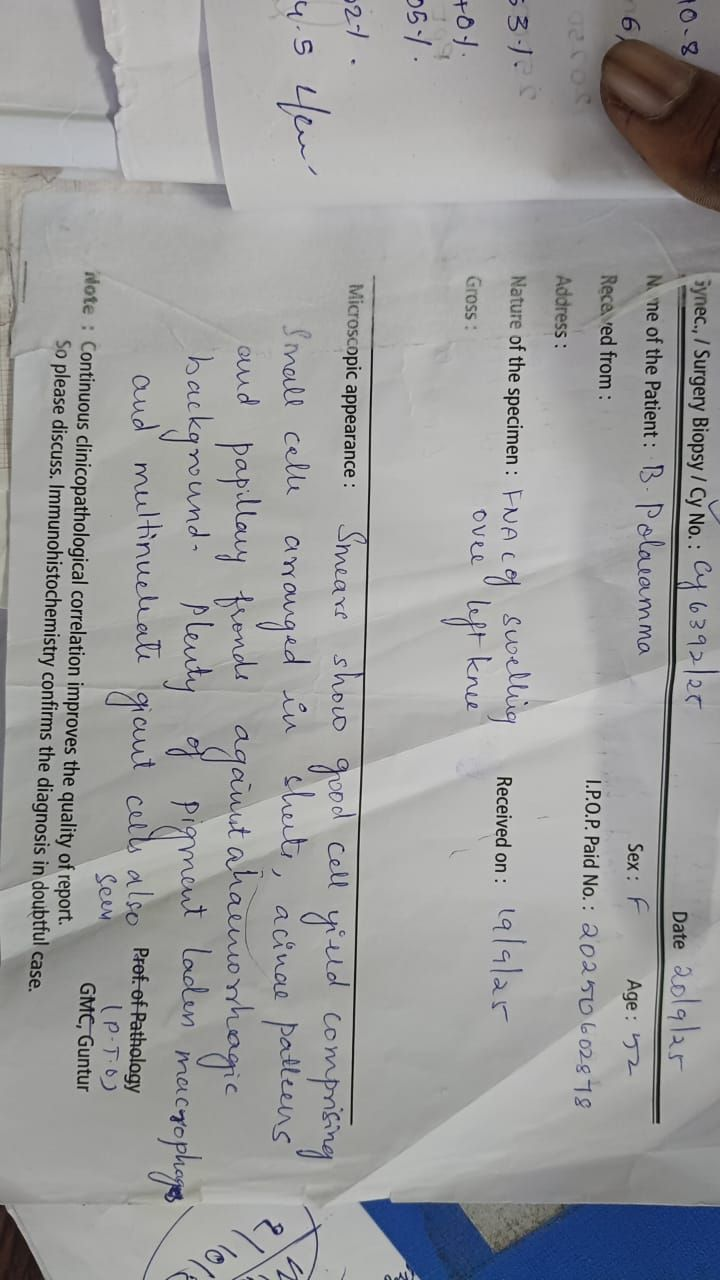 10.8
6,
53%
40%.
05%.
02%.
4.5 L/cu
Gynec., / Surgery Biopsy / Cy No.: Cy 6392/25
Date 20/9/25
Name of the Patient : B. Polaramma
Sex : F Age : 52
Received from :
I.P.O.P. Paid No.: 20250602878
Address :
Nature of the specimen : FNAC of swelling
over left knee
Received on : 19/9/25
Gross :
Microscopic appearance : Smears show good cell yield comprising
small cells arranged in sheets, acinar patterns
and papillary fronds against a haemorrhagic
background. Plenty of pigment laden macrophages
and multinucleate giant cells also
seen
Prof. of Pathology
(P.T.O)
GMC, Guntur
Note : Continuous clinicopathological correlation improves the quality of report.
So please discuss. Immunohistochemistry confirms the diagnosis in doubtful case.